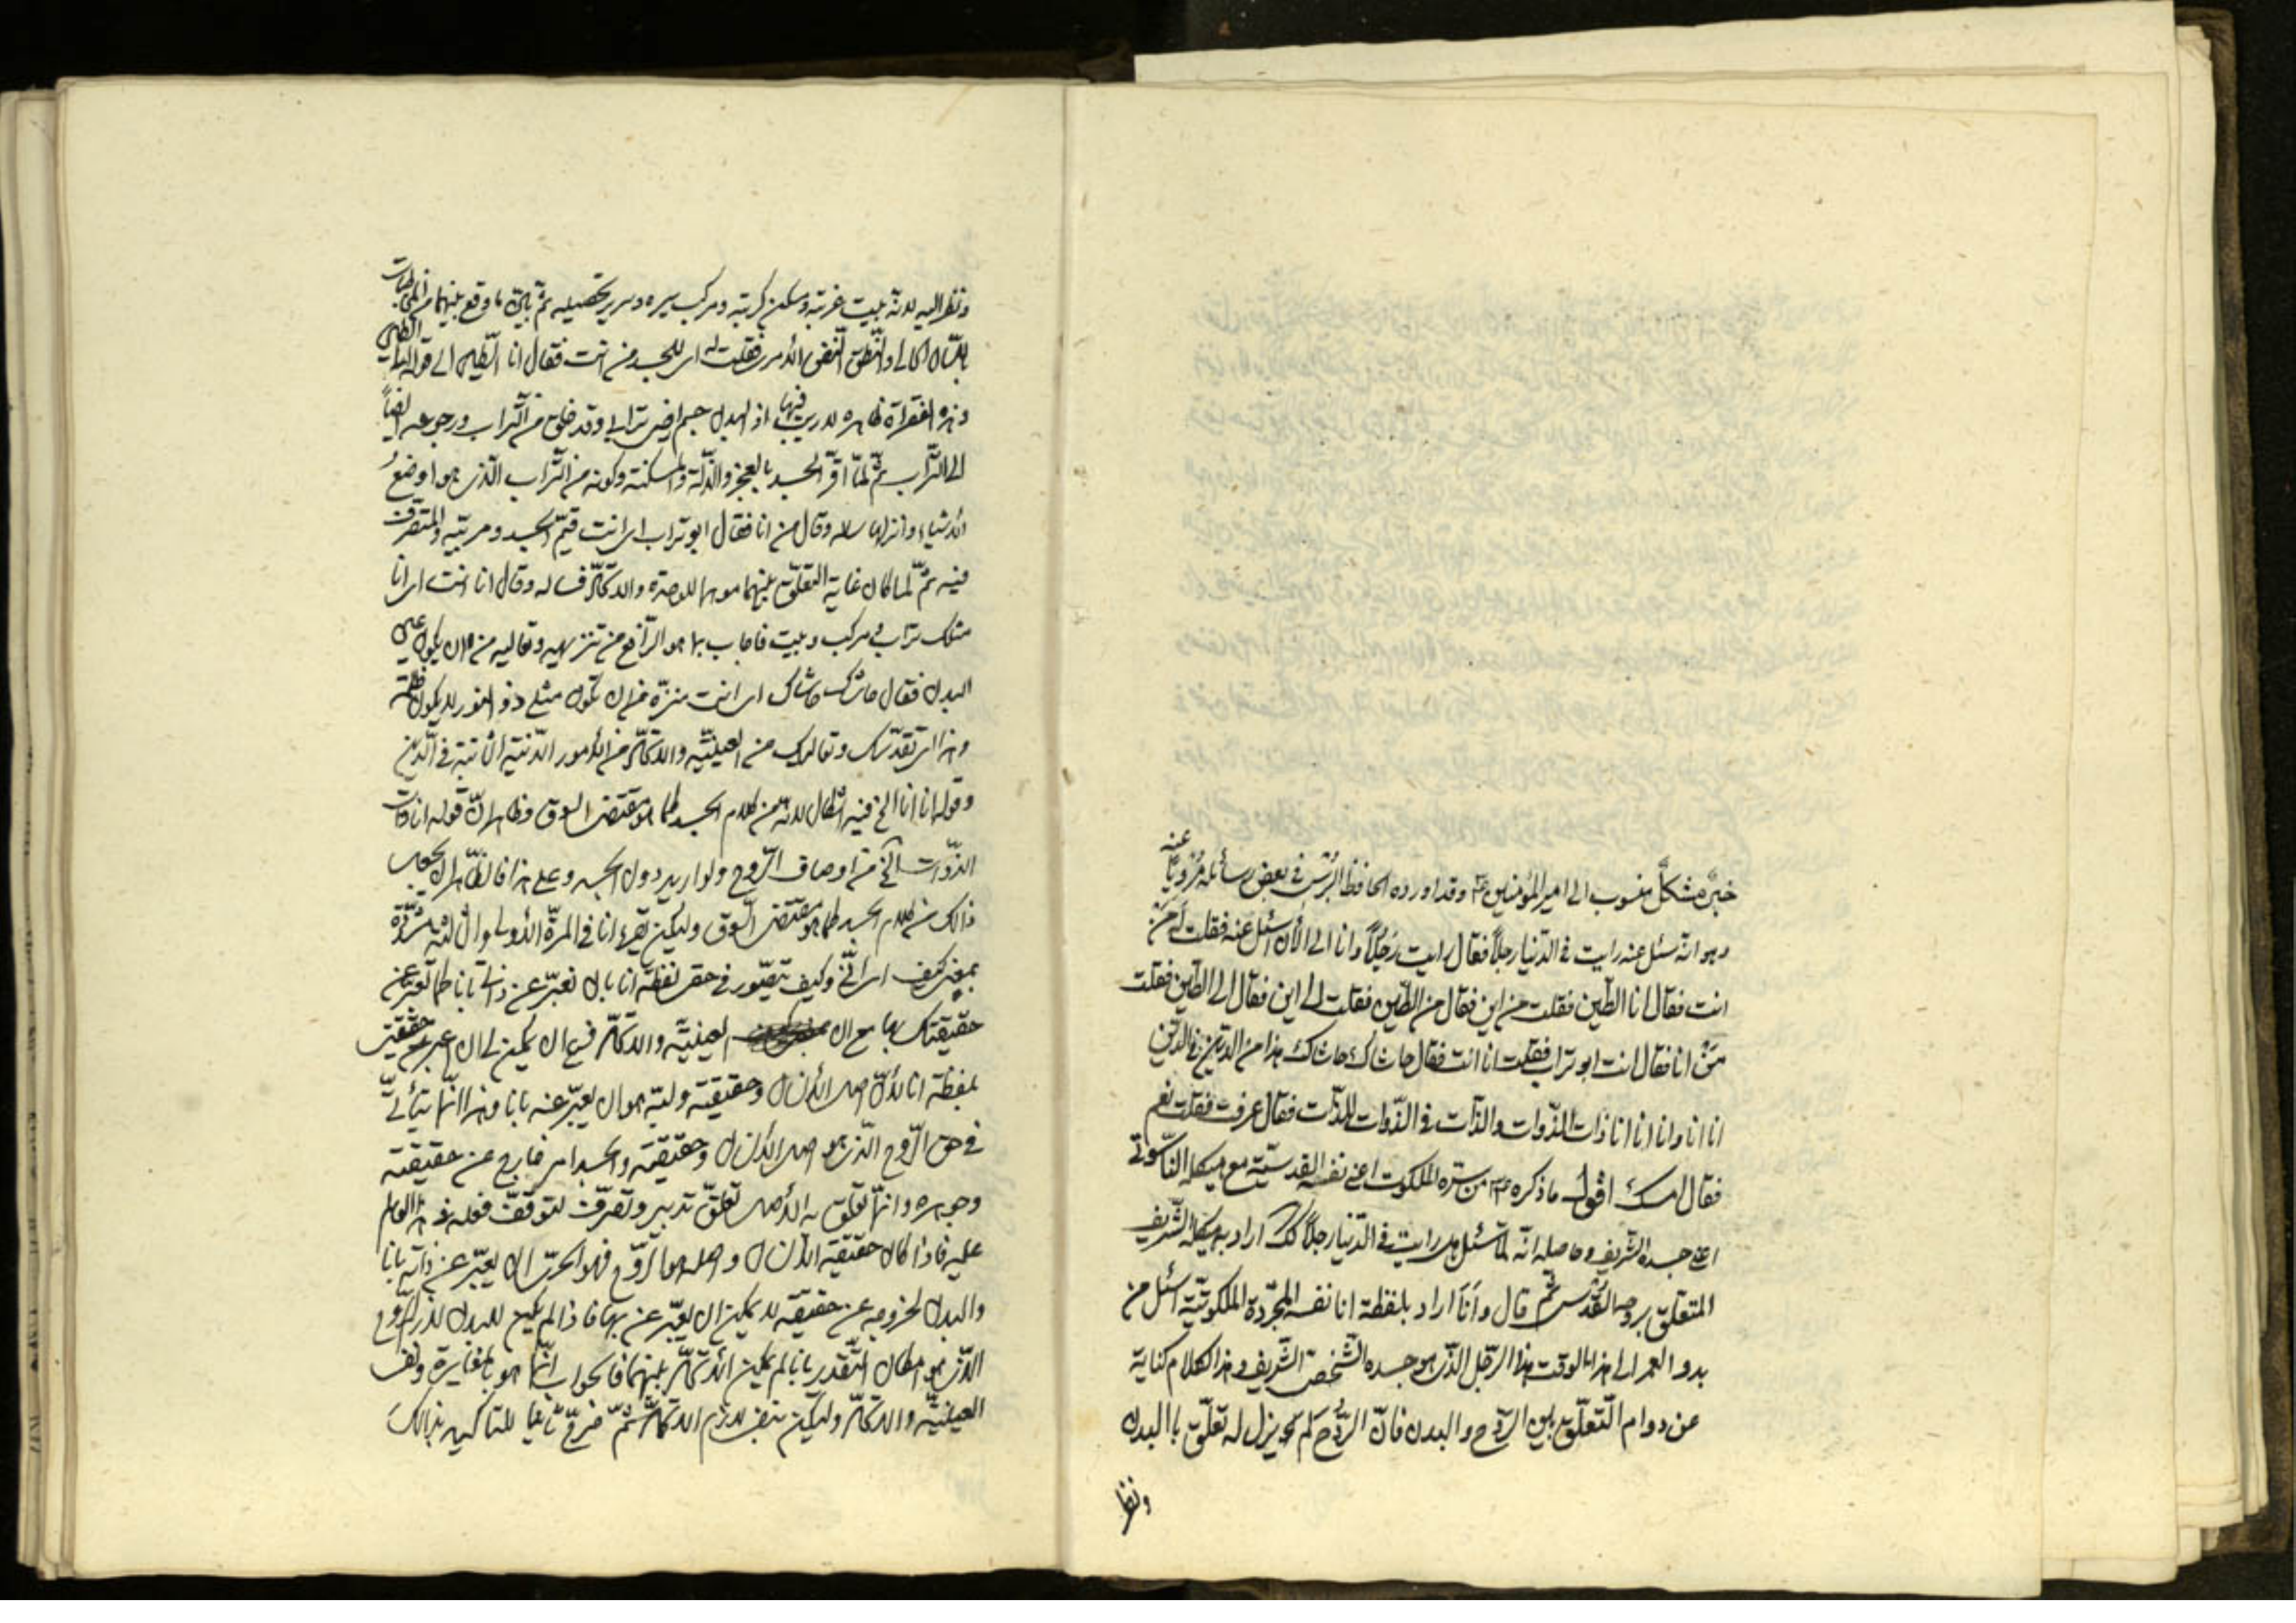 خبر مشكل منسوب الى امير المؤمنين ع وقد اورده الحافظ البرسى فى بعض رسائله مرويا عنه
وهو انه سئل عنه رايت فى الدنيا رجلا فقال رايت رجلا وانا الى الآن اسئل عنه فقلت له من
انت فقال انا الطين فقلت من اين فقال من الطين فقلت الى اين فقال الى الطين فقلت
من انا فقال انت ابو تراب فقلت انا انت فقال حاشاك حاشاك هذا من الدين فى الدين
انا انا وانا انا انا ذات الذوات والذات فى الذوات للذات فقال عرفت فقلت نعم
فقال امسك اقول ما ذكره ع من سره الملكوت اعنى نفسه القدسية مع هيكله الناسوتى
اعنى جسده الشريف وحاصله انه لما سئل هل رايت فى الدنيا رجلا اراد به هيكله الشريف
المتعلق بروحه القدسى ثم قال وانا اراد بلفظة انا نفسه المجردة الملكوتية اسئل من
بدو العمر الى هذا الوقت هذا الرجل الذى هو جسده الشخص الشريف وهذا الكلام كناية
عن دوام التعلق بين الروح والبدن فان الروح لم يزل له تعلق باالبدن
ونظر
ونظر اليه لانه بيت غربته ومسكن كربته ومركب سيره وسرير تحصيله ثم بين ما وقع بينهما من المخاطبات
بلسان الحال والنطق فقلت له اى للجسد من انت فقال انا الطين الى قوله الى الطين
وهذه الفقرات ظاهرة لا ريب فيها اذ البدن جسم ارضى ترابى وقد خلق من التراب ورجوعه ايضا
الى التراب ثم لما اقر الجسد بالعجز والذلة والمسكنة وكونه من التراب الذى هو اوضع
الاشياء وانزلها ساله وقال من انا فقال ابو تراب اى انت قيم الجسد ومربيه والمتصرف
فيه ثم لما كان غاية التعلق بينهما موهما للوحدة والاتحاد فساله وقال انا انت اى انا
مثلك تراب مركب وبيت فاجاب بما هو الرافع من تنزيهه وتعاليه من ان يكون عين
البدن فقال حاشاك حاشاك اى انت منزه من ان تكون مثلى ذو النور لا يكون ظلمة
وهذا اى تقدسك وتعاليك من العينية والاتحاد من الامور الدينية الثابتة فى الدين
وقوله انا انا الخ فيه اشكال لانه من كلام الجسد كما هو مقتضى السوق وظاهر ان قوله انا ذات
الذوات الخ من اوصاف الروح ولوازمه دون الجسد وعلى هذا فالظاهر ان يجعل
ذالك من كلام الجسد كما هو مقتضى السوق وليكن يقرء انا فى المرة الاولى والثالثة مشددة
بمعنى كيف اى انى وكيف يتصور فى حقى لفظة انا بان تعبر عن ذاتى بانا كما تعبر عن
حقيقتك بها مع ان العينية والاتحاد فرع ان يمكن لى ان اعبر عن حقيقتى
بلفظة انا لان اصل الانسان وحقيقته ولبه هو ان يعبر عنه بانا وهذا انما يتأتى
فى حق الروح الذى هو اصل الانسان وحقيقته والجسد امر خارج عن حقيقته
وجوهره وانما تعلق به الاصل تعلق تدبير وتصرف لتوقف فعله فى هذا العالم
عليه فاذا كان حقيقة الانسان واصله هو الروح فهو الحرى ان يعبر عن ذاته بانا
والبدن لخروجه عن حقيقته لا يمكن ان يعبر عن بها فاذا لم يكن للبدن
الذى هو مكان التقدير بانا لم يكن الاتحاد بينهما فالجواب انما هو بالمغايرة ونفى
العينية والاتحاد وليكن بنفى لازم الاتحاد ثم صرح ثانيا للتاكيد بذالك